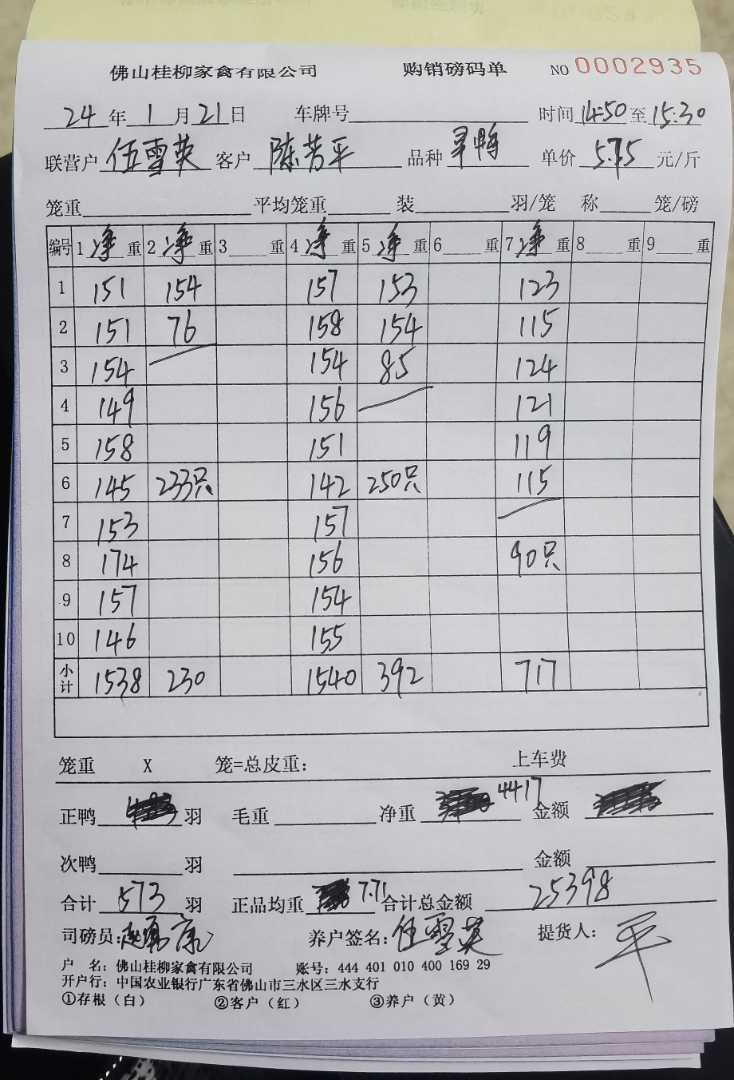 佛山桂柳家禽有限公司 购销磅码单 NO 0002935
24 年 1 月 21 日 车牌号 时间 14:50 至 15:30
联营户 伍雪英 客户 陈芳平 品种 单价 5.75 元/斤
笼重 平均笼重 装 羽/笼 称 笼/磅
编号 1 净 重 2 净 重 3 重 4 净 重 5 净 重 6 重 7 净 重 8 重 9 重
1 151 154 157 153 123
2 151 76 158 154 115
3 154 154 85 124
4 149 156 121
5 158 151 119
6 145 233只 142 250只 115
7 153 157
8 174 156 90只
9 157 154
10 146 155
小计 1538 230 1540 392 717
笼重 X 笼=总皮重: 上车费
正鸭 羽 毛重 净重 4417 金额
次鸭 羽 金额
合计 573 羽 正品均重 7.71 合计总金额 25398
司磅员: 养户签名: 伍雪英 提货人: 平
户 名: 佛山桂柳家禽有限公司 账号: 444 401 010 400 169 29
开户行: 中国农业银行广东省佛山市三水区三水支行
①存根(白) ②客户(红) ③养户(黄)